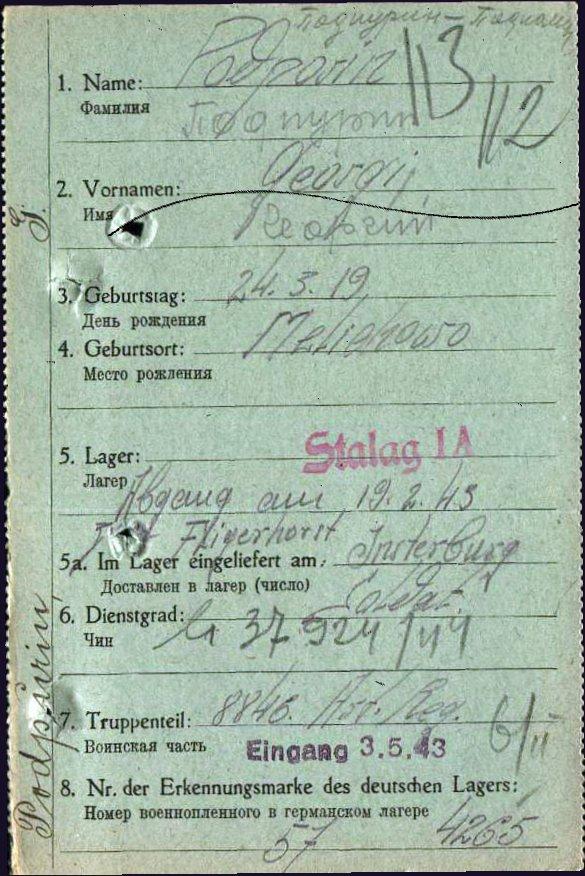 Подпурин – 
113
1. Name: Podpurin
Фамилия Подпурин
112
2. Vornamen: Georgij
Имя Георгий
3. Geburtstag: 24.3.19.
День рождения
4. Geburtsort: Melichowo
Место рождения
5. Lager: Stalag IA
Лагер
Abgang am 19.2.43
Fligerhorst
5a. Im Lager eingeliefert am: Insterburg
Доставлен в лагер (число)
6. Dienstgrad: Soldat
Чин 37 924/44
7. Truppenteil: 8846. Art. Reg.
Воинская часть Eingang 3.5.43
6/II
8. Nr. der Erkennungsmarke des deutschen Lagers:
Номер военнопленного в германском лагере
57 4265
Podpurin, G.